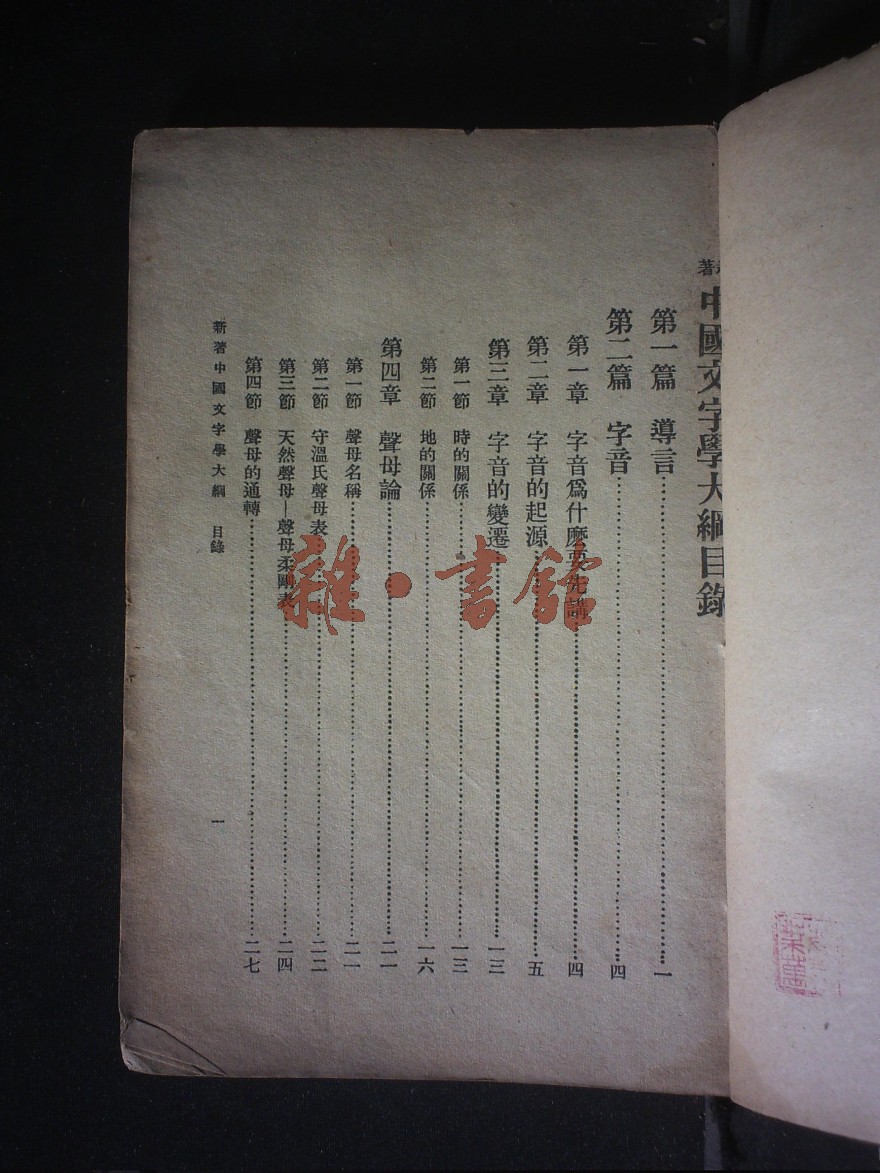 著中國文字學大綱目錄
第一篇 導言……一
第二篇 字音……四
第一章 字音爲什麼要先講……四
第二章 字音的起源……五
第三章 字音的變遷……一三
第一節 時的關係……一三
第二節 地的關係……一六
第四章 聲母論……二一
第一節 聲母名稱……二一
第二節 守溫氏聲母表……二二
第三節 天然聲母—聲母柔剛表……二四
第四節 聲母的通轉……二七
新著中國文字學大綱 目錄 一
雜·書館